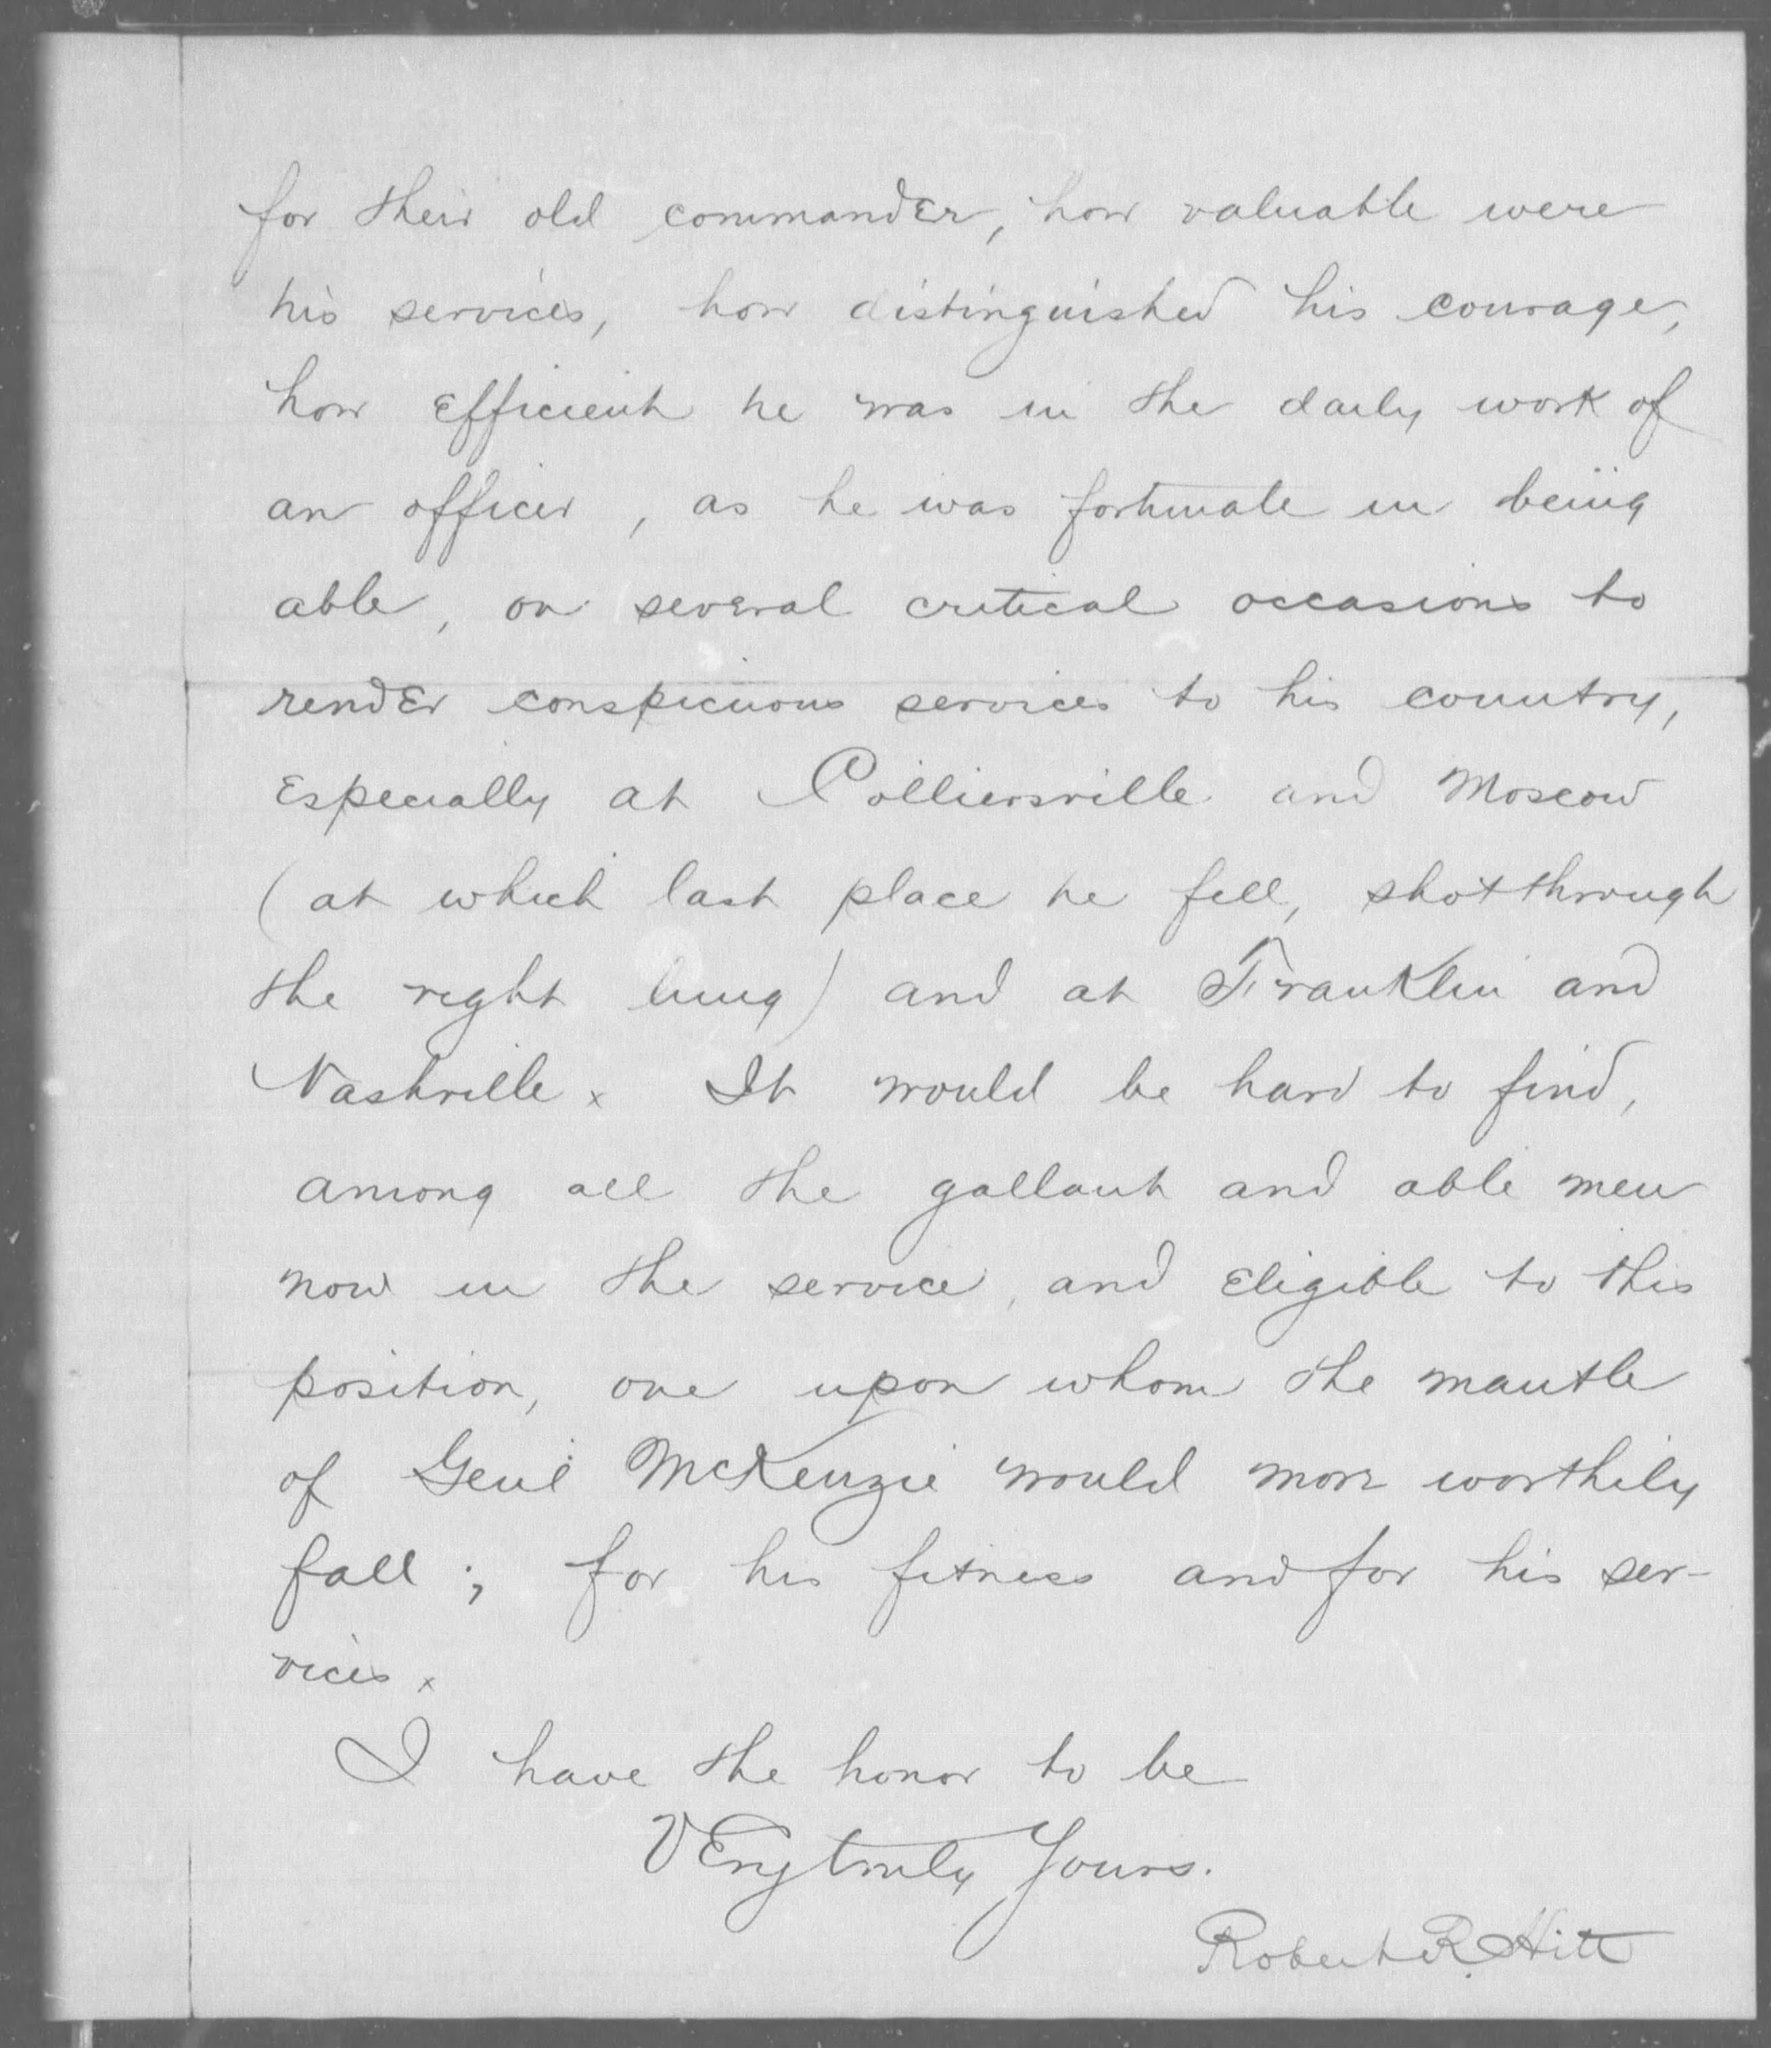 for their old commander, how valuable were
his services, how distinguished his courage,
how efficient he was in the daily work of
an officer, as he was fortunate in being
able, on several critical occasions to
render conspicuous services to his country,
especially at Colliersville and Moscow
(at which last place he fell, shot through
the right lung) and at Franklin and
Nashville. It would be hard to find,
among all the gallant and able men
now in the service, and eligible to this
position, one upon whom the mantle
of Genl McKenzie would more worthily
fall; for his fitness and for his ser-
vices.
I have the honor to be
Very truly Yours.
Robert R. Hitt